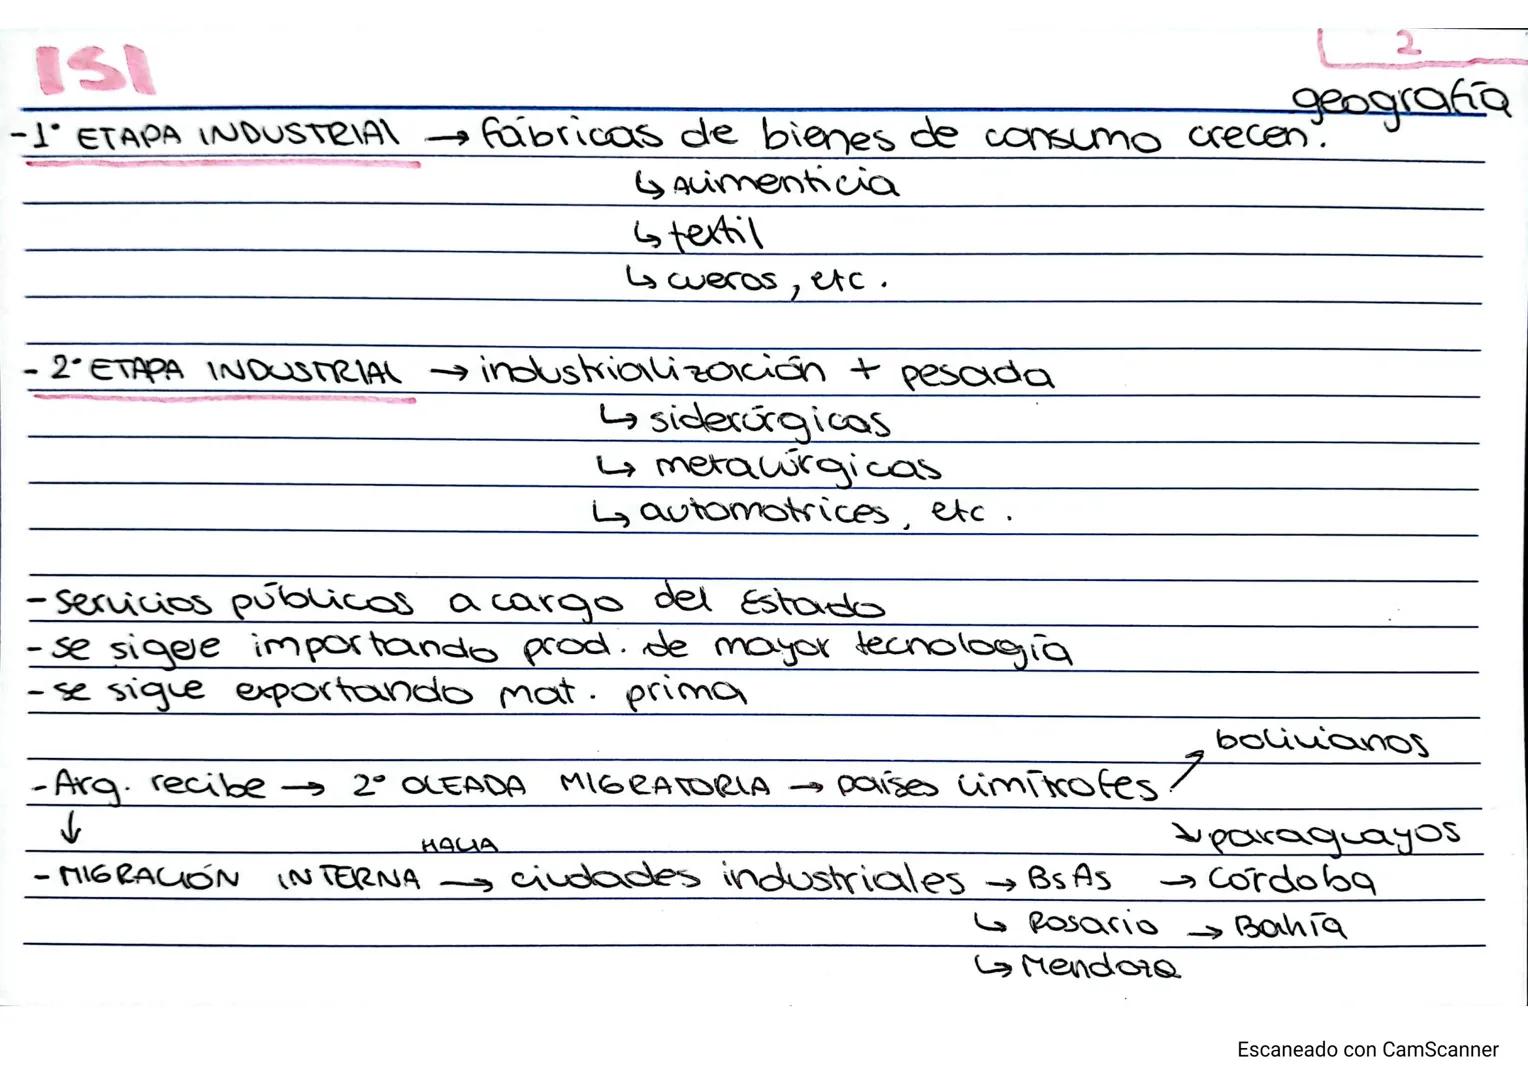 ISI
2
geografía
-1° ETAPA INDUSTRIAL → fábricas de bienes de consumo crecen.
↳ Alimenticia
↳ textil
↳ cueros, etc.
- 2° ETAPA INDUSTRIAL → industrialización + pesada
↳ siderúrgicas
↳ metalúrgicas
↳ automotrices, etc.
- servicios públicos a cargo del Estado
- se sigue importando prod. de mayor tecnología
- se sigue exportando mat. prima
bolivianos
- Arg. recibe → 2° OLEADA MIGRATORIA → países limítrofes ↗
↓ ↘ paraguayos
HACIA
- MIGRACIÓN INTERNA → ciudades industriales → BsAs → Córdoba
↳ Rosario → Bahía
↳ Mendoza
Escaneado con CamScanner